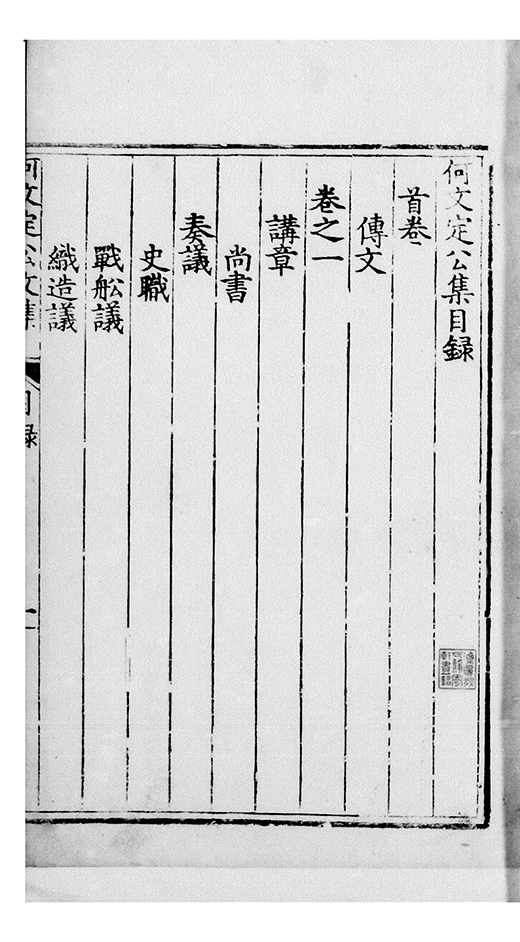 何文定公集目録
首卷
傳文
卷之一
講章
尚書
奏議
史職
戰舩議
織造議
何文定公文集
目録
一